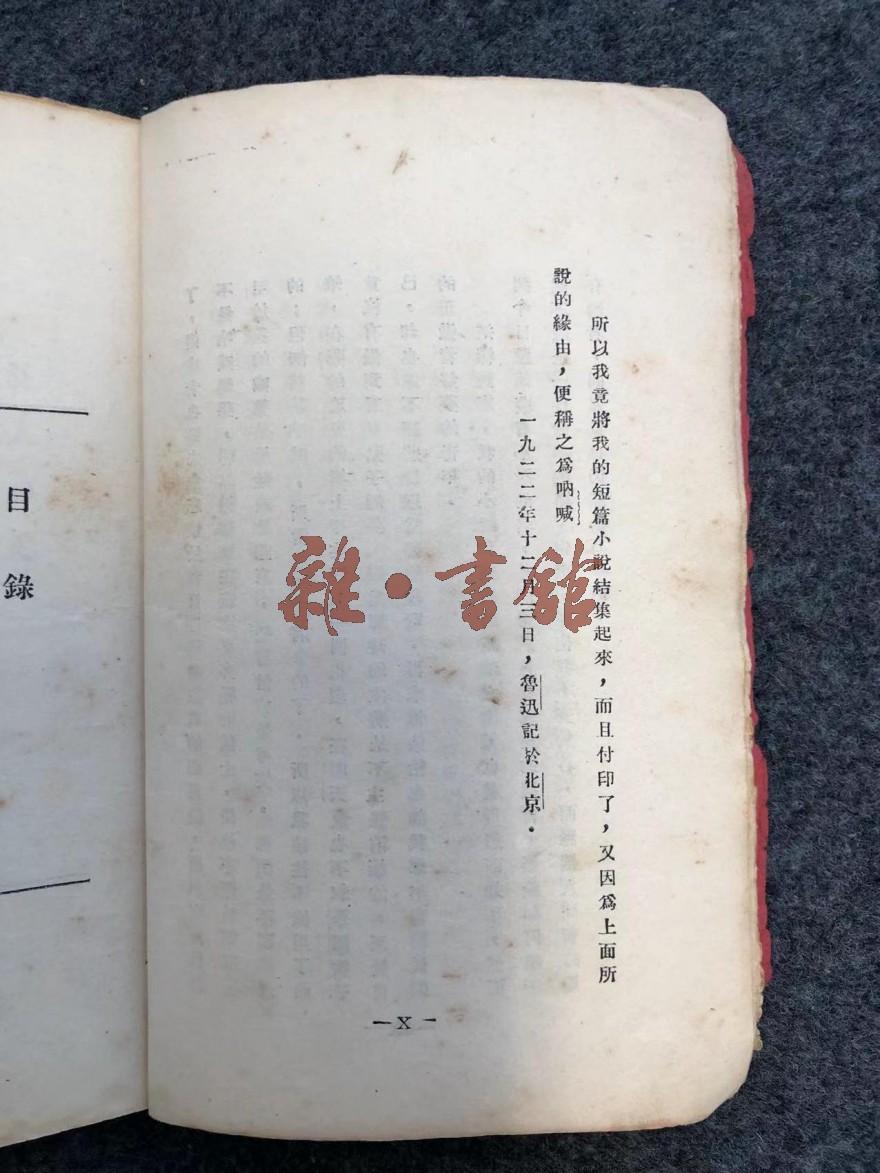 所以我竟將我的短篇小說結集起來，而且付印了，又因爲上面所
說的緣由，便稱之爲吶喊
一九二二年十二月三日，魯迅記於北京．
—X—
目錄
雜·書館